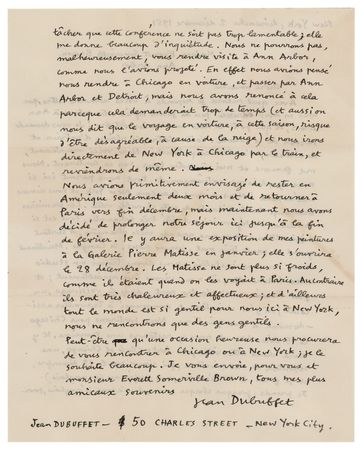 tâcher que cette conférence ne soit pas trop lamentable ; elle
me donne beaucoup d'inquiétude. Nous ne pourrons pas,
malheureusement, vous rendre visite à Ann Arbor,
comme nous l'avions projeté. En effet nous avions pensé
nous rendre à Chicago en voiture, et passer par Ann
Arbor et Detroit, mais nous avons renoncé à cela
parceque cela demanderait trop de temps (et aussi on
nous dit que le voyage en voiture, à cette saison, risque
d'être désagréable, à cause de la neige) et nous irons
directement de New York à Chicago par le train, et
reviendrons de même.
Nous avions primitivement envisagé de rester en
Amérique seulement deux mois et de retourner à
Paris vers fin décembre, mais maintenant nous avons
décidé de prolonger notre séjour ici jusqu'à la fin
de février. Il y aura une exposition de mes peintures
à la Galerie Pierre Matisse en janvier ; elle s'ouvrira
le 28 décembre. Les Matisse ne sont plus si froids,
comme ils étaient quand on les voyait à Paris. Au contraire
ils sont très chaleureux et affectueux ; et d'ailleurs
tout le monde est si gentil pour nous ici à New York,
nous ne rencontrons que des gens gentils.
Peut-être qu'une occasion heureuse nous procurera
de vous rencontrer à Chicago ou à New York ; je le
souhaite beaucoup. Je vous envoie, pour vous et
monsieur Everett Somerville Brown, tous mes plus
amicaux souvenirs
Jean Dubuffet
Jean DUBUFFET - 50 CHARLES STREET - New York City.